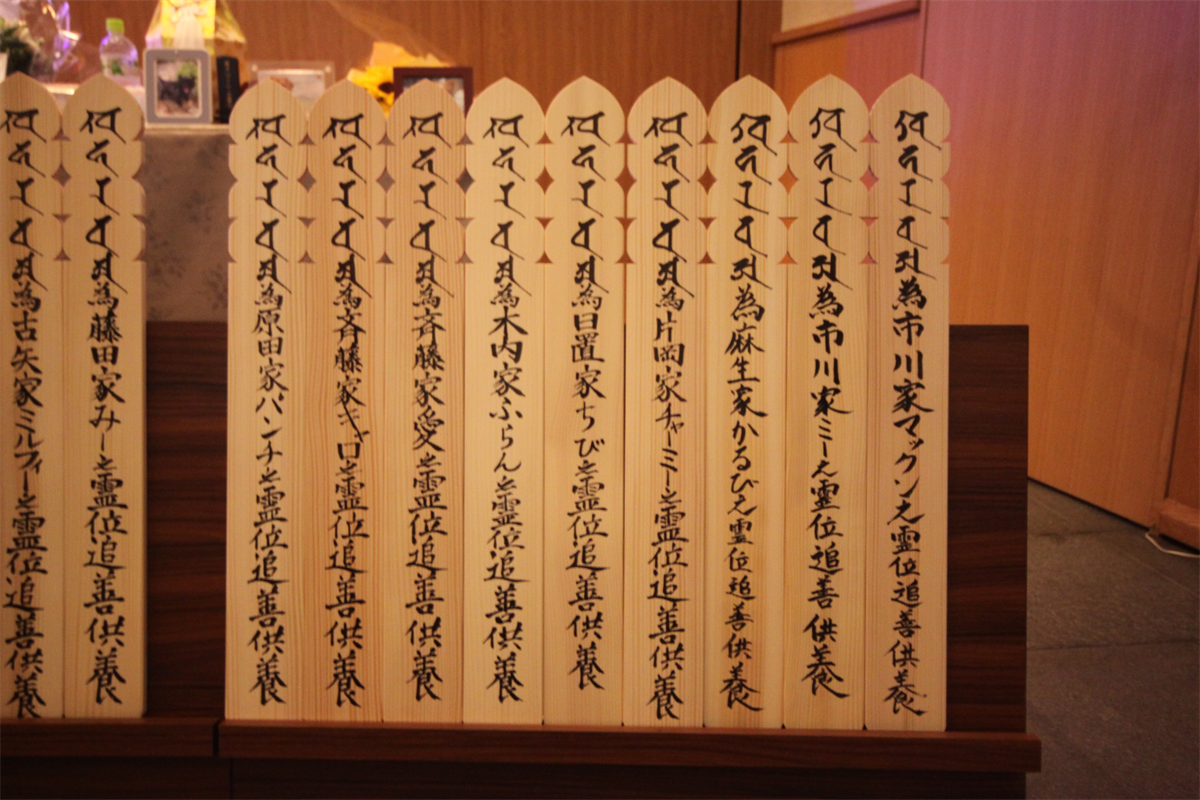 為市川家マックン之霊位追善供養
為市川家ミー之霊位追善供養
為麻生家かるび之霊位追善供養
為片岡家チャーミー之霊位追善供養
為日置家ちび之霊位追善供養
為木内家ふらん之霊位追善供養
為斉藤家愛之霊位追善供養
為斉藤家之霊位追善供養
為原田家パンチ之霊位追善供養
為藤田家みー之霊位追善供養
為古矢家ミルフィー之霊位追善供養